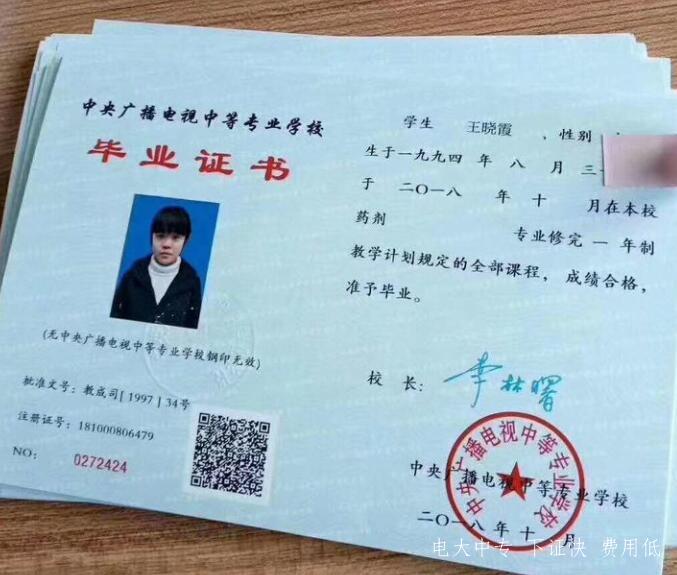 中央广播电视中等专业学校
毕业证书
(无中央广播电视中等专业学校钢印无效)
批准文号：教成司[1997]34号
注册证号：181000806479
NO： 0272424
学生 王晓霞 、性别
生于一九九四 年 八 月 三
于 二〇一八 年 十 月在本校
药剂 专业修完 一 年制
教学计划规定的全部课程，成绩合格，
准予毕业。
校 长： 李林曙
中央广播电视中等专业学校
中央广播电视中等专业学校
二〇一八年 十 月
电大中专 下证快 费用低